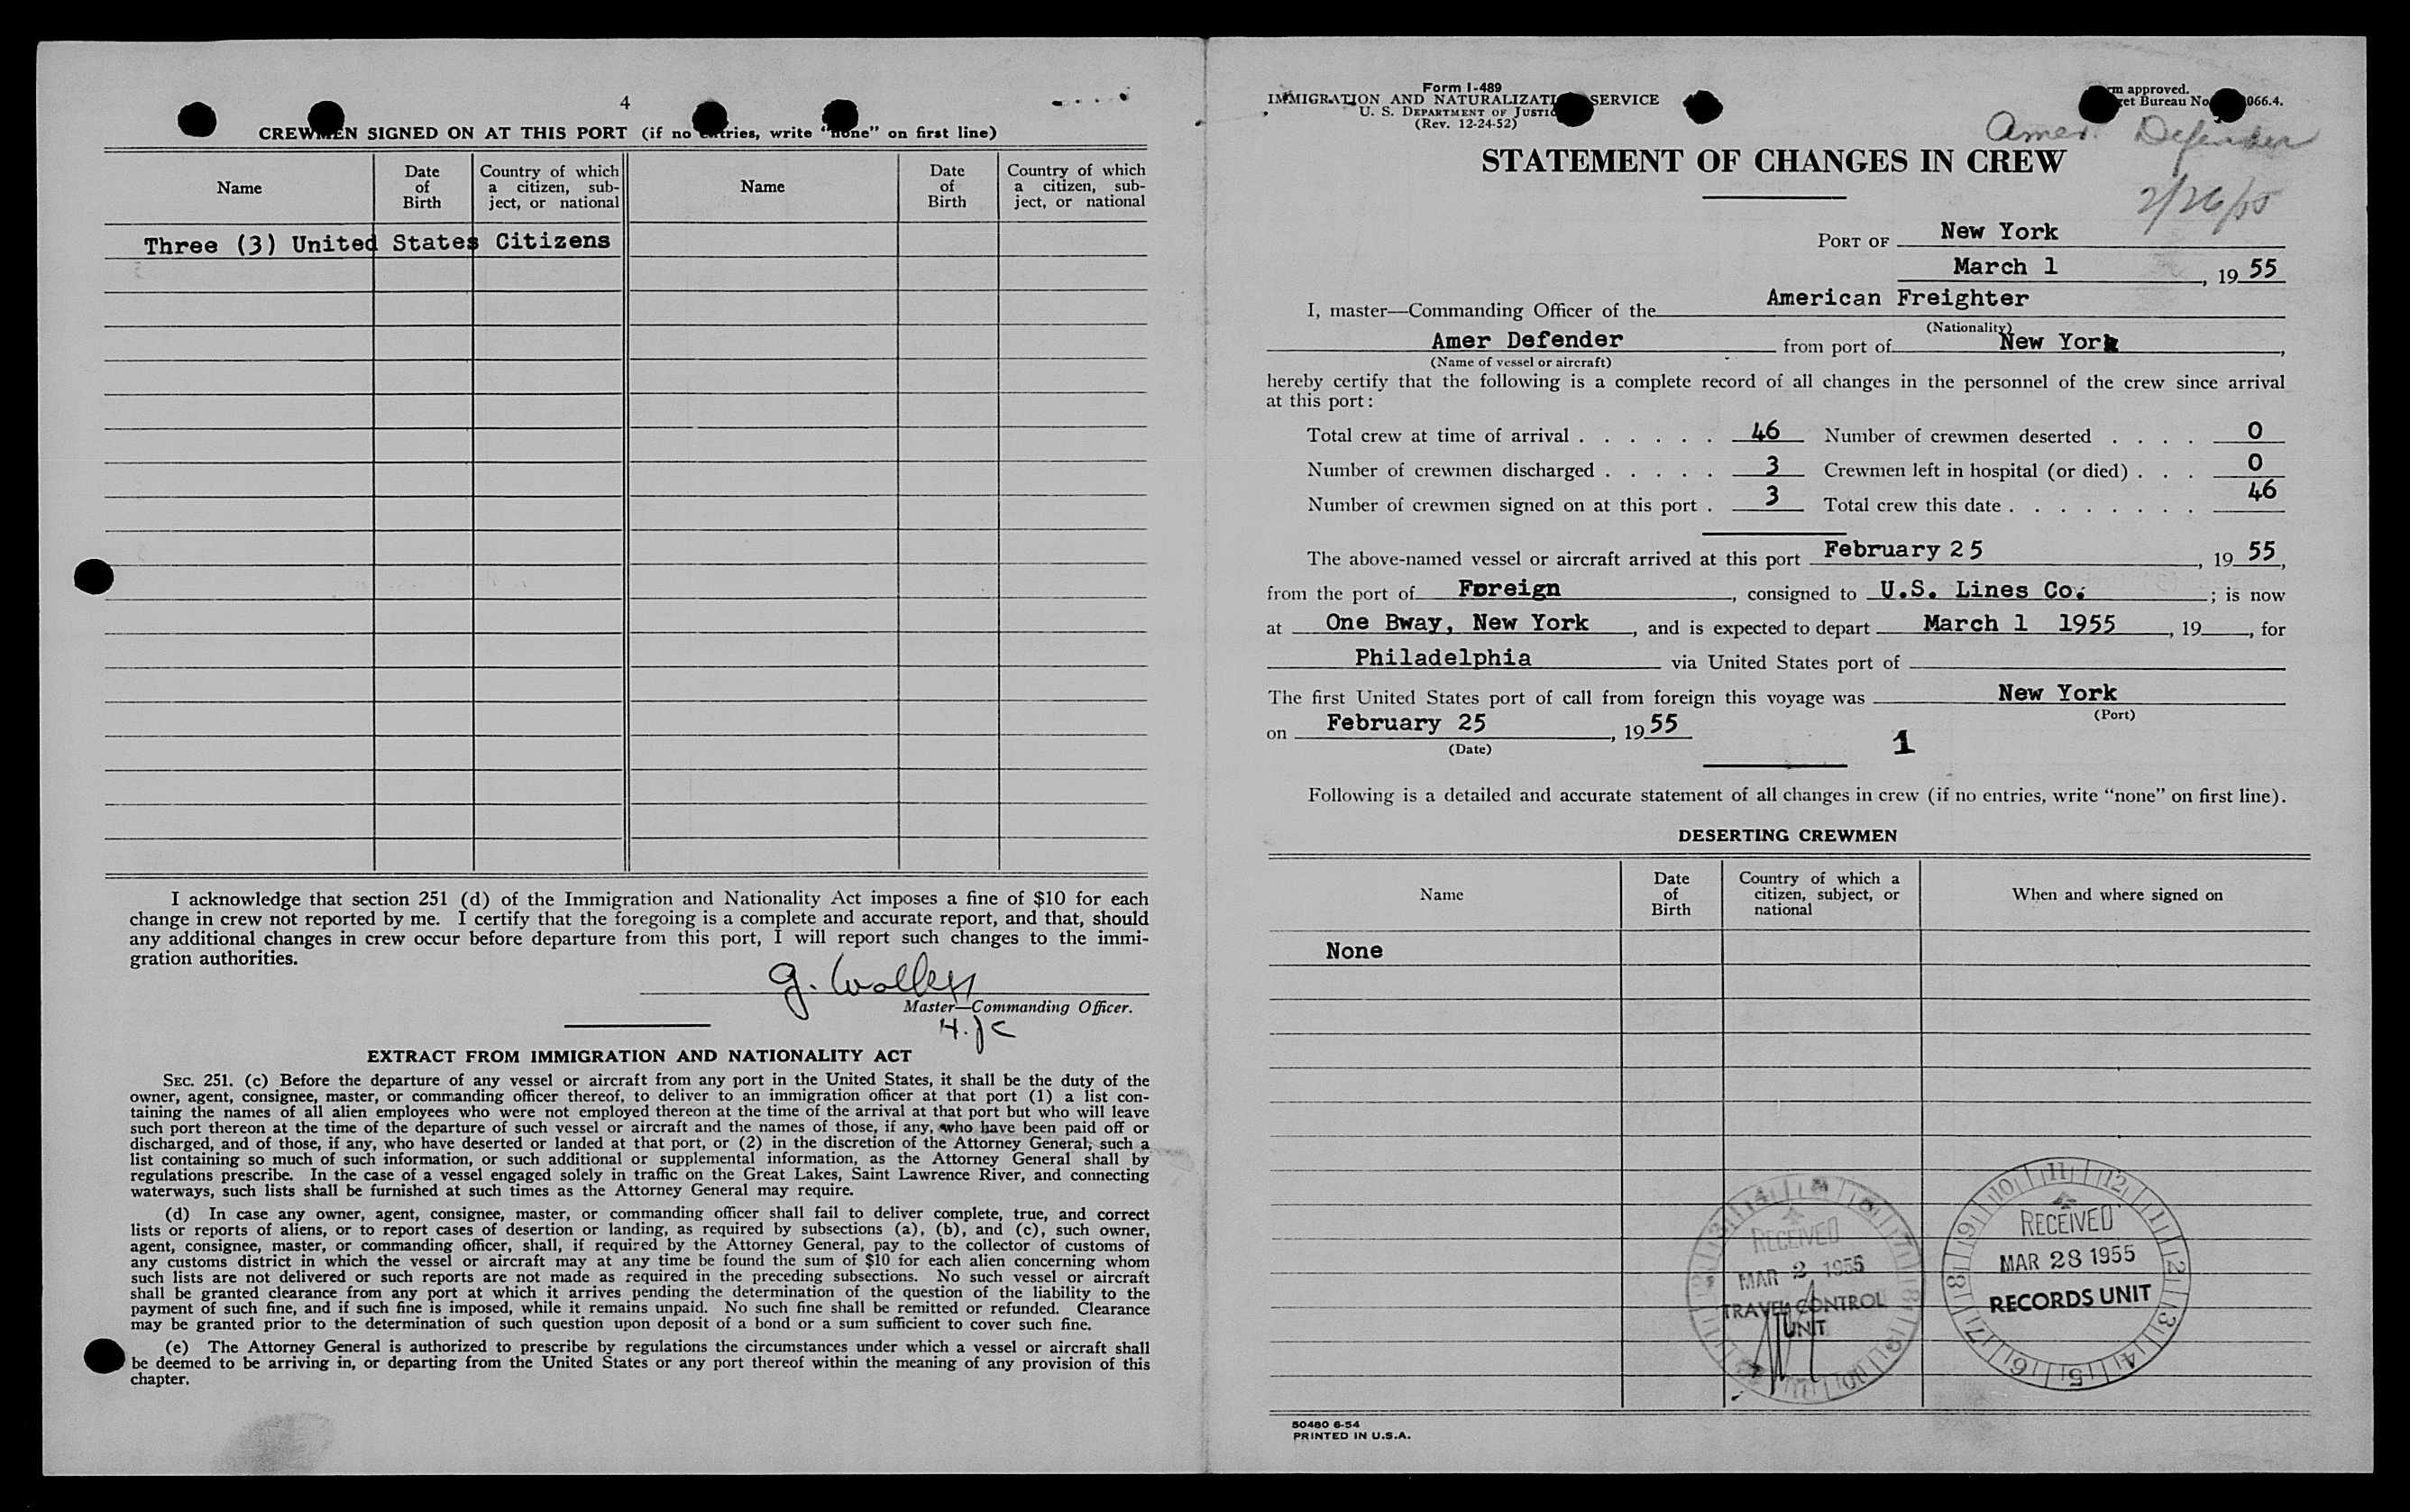 4
CREWMEN SIGNED ON AT THIS PORT (if no entries, write "none" on first line)
Name
Date of Birth
Country of which a citizen, sub-ject, or national
Name
Date of Birth
Country of which a citizen, sub-ject, or national
Three (3) United States Citizens
I acknowledge that section 251 (d) of the Immigration and Nationality Act imposes a fine of $10 for each
change in crew not reported by me. I certify that the foregoing is a complete and accurate report, and that, should
any additional changes in crew occur before departure from this port, I will report such changes to the immi-
gration authorities.
G.
Master—Commanding Officer.
H.JC
EXTRACT FROM IMMIGRATION AND NATIONALITY ACT
SEC. 251. (c) Before the departure of any vessel or aircraft from any port in the United States, it shall be the duty of the
owner, agent, consignee, master, or commanding officer thereof, to deliver to an immigration officer at that port (1) a list con-
taining the names of all alien employees who were not employed thereon at the time of the arrival at that port but who will leave
such port thereon at the time of the departure of such vessel or aircraft and the names of those, if any, who have been paid off or
discharged, and of those, if any, who have deserted or landed at that port, or (2) in the discretion of the Attorney General, such a
list containing so much of such information, or such additional or supplemental information, as the Attorney General shall by
regulations prescribe. In the case of a vessel engaged solely in traffic on the Great Lakes, Saint Lawrence River, and connecting
waterways, such lists shall be furnished at such times as the Attorney General may require.
(d) In case any owner, agent, consignee, master, or commanding officer shall fail to deliver complete, true, and correct
lists or reports of aliens, or to report cases of desertion or landing, as required by subsections (a), (b), and (c), such owner,
agent, consignee, master, or commanding officer, shall, if required by the Attorney General, pay to the collector of customs of
any customs district in which the vessel or aircraft may at any time be found the sum of $10 for each alien concerning whom
such lists are not delivered or such reports are not made as required in the preceding subsections. No such vessel or aircraft
shall be granted clearance from any port at which it arrives pending the determination of the question of the liability to the
payment of such fine, and if such fine is imposed, while it remains unpaid. No such fine shall be remitted or refunded. Clearance
may be granted prior to the determination of such question upon deposit of a bond or a sum sufficient to cover such fine.
(e) The Attorney General is authorized to prescribe by regulations the circumstances under which a vessel or aircraft shall
be deemed to be arriving in, or departing from the United States or any port thereof within the meaning of any provision of this
chapter.
Form I-489
IMMIGRATION AND NATURALIZATION SERVICE
U. S. DEPARTMENT OF JUSTICE
(Rev. 12-24-52)
Form approved.
Budget Bureau No. 066.4.
Amer. Defender
2/26/55
STATEMENT OF CHANGES IN CREW
PORT OF New York
March 1, 19 55
I, master—Commanding Officer of the American Freighter
(Nationality)
Amer Defender from port of New York,
(Name of vessel or aircraft)
hereby certify that the following is a complete record of all changes in the personnel of the crew since arrival
at this port:
Total crew at time of arrival . . . . . . 46 Number of crewmen deserted . . . . 0
Number of crewmen discharged . . . . . 3 Crewmen left in hospital (or died) . . . 0
Number of crewmen signed on at this port . 3 Total crew this date . . . . . . . . 46
The above-named vessel or aircraft arrived at this port February 25, 19 55,
from the port of Foreign, consigned to U.S. Lines Co.; is now
at One Bway, New York, and is expected to depart March 1 1955, 19, for
Philadelphia via United States port of
The first United States port of call from foreign this voyage was New York
(Port)
on February 25, 19 55
(Date)
1
Following is a detailed and accurate statement of all changes in crew (if no entries, write "none" on first line).
DESERTING CREWMEN
Name
Date of Birth
Country of which a citizen, subject, or national
When and where signed on
None
RECEIVED
MAR 2 1955
TRAVEL CONTROL
UNIT
10 11 12 1 2 3 4 5 6 7 8 9
RECEIVED
MAR 28 1955
RECORDS UNIT
50480 6-54
PRINTED IN U.S.A.